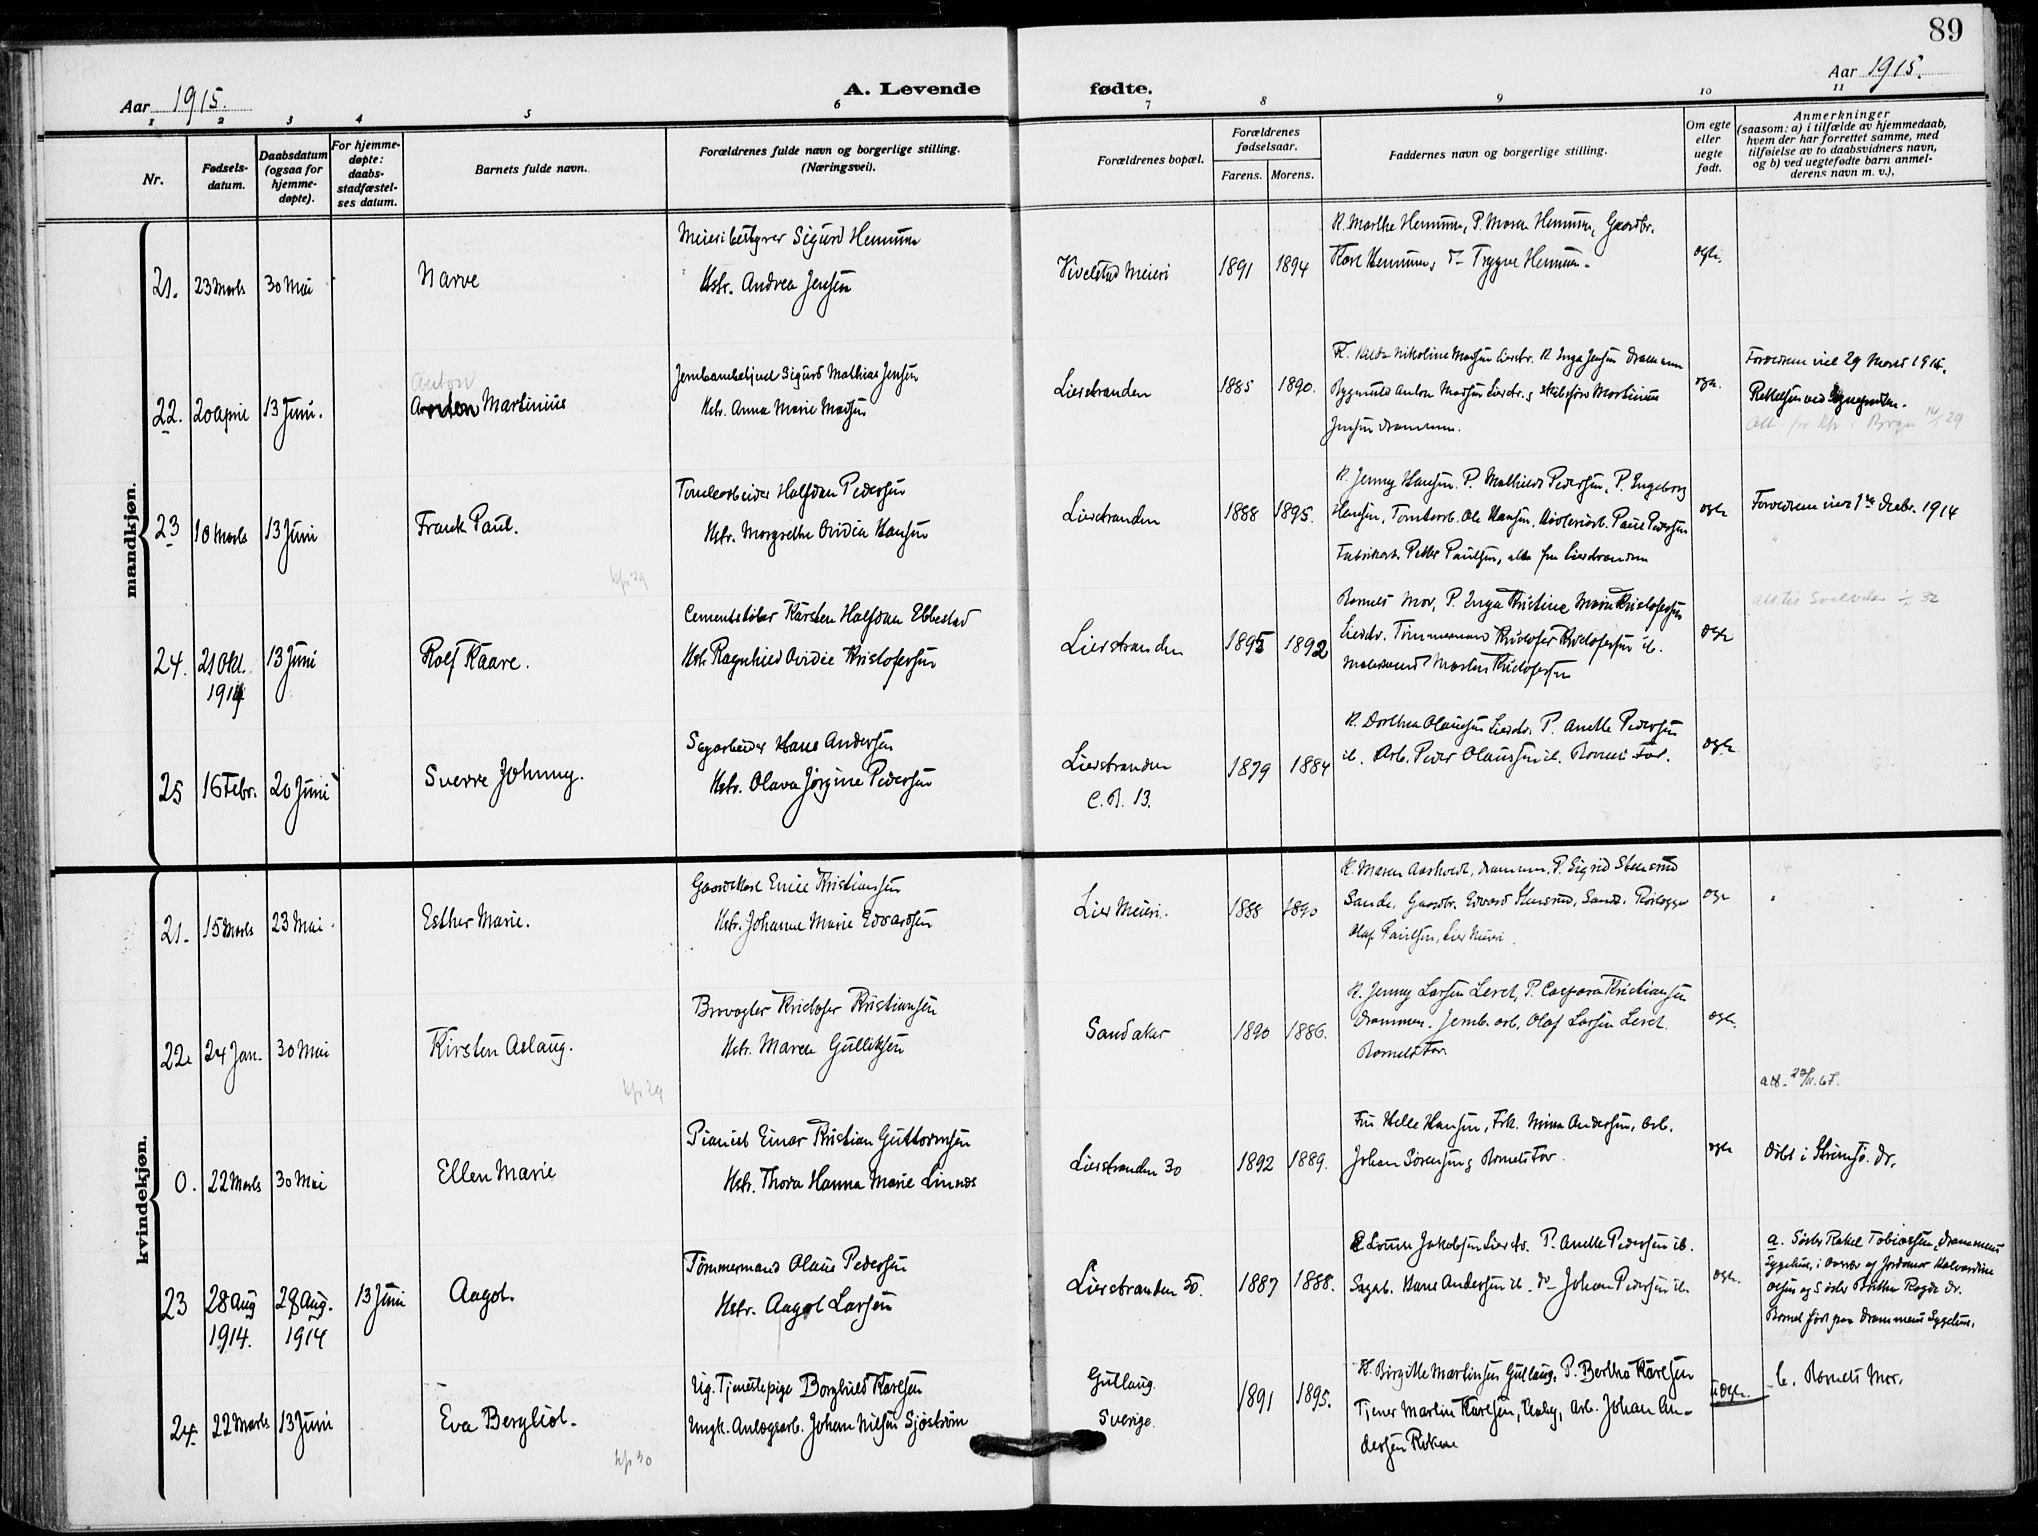 89
Aar 1915.
A. Levende fødte.
Aar 1915.
1 2 3 4 5 6 7 8 9 10 11
Nr.
Fødsels-
datum.
Daabsdatum
(ogsaa for
hjemme-
døpte).
For hjemme-
døpte:
daabs-
stadfæstel-
ses datum.
Barnets fulde navn.
Forældrenes fulde navn og borgerlige stilling.
(Næringsvei).
Forældrenes bopæl.
Forældrenes
fødselsaar.
Farens. Morens.
Faddernes navn og borgerlige stilling.
Om egte
eller
uegte
født.
Anmerkninger
(saasom: a) i tilfælde av hjemmedaab,
hvem der har forrettet samme, med
tilføielse av to daabsvidners navn,
og b) ved uegtefødte barn anmel-
derens navn m. v.).
mandkjøn.
21. 23 Marts 30 Mai Narve
Meieribestyrer Sigurd Hennum
Hstr. Andrea Jensen
Kivelstad Meieri 1891 1894
K. Marthe Hennum, P. Maren Hennum, Gaardbr.
Karl Hennum, Trygve Hennum.
egte.
22. 20 April 13 Juni.
Anton
Martinius
Jernbanebetjent Sigurd Mathias Jensen
Hstr. Anna Marie Madsen
Lierstranden 1885 1890.
K. Hilda Nikoline Madsen Lierstr. K. Inga Jensen Drammen
Anton Madsen Lierstr., Martinius
Jensen Drammen.
egte.
Forældrene viet 29 1914.
14/ 29
23 10 Marts 13 Juni Frank Paul.
kfr 29
Tomtearbeider Halfdan Pedersen
Hstr. Margrethe Ovidia Hansen
Lierstranden 1888 1895.
K. Jenny Hansen. P. Mathilde Pedersen, P. Ingeborg
Hansen, Tomtearb. Ole Hansen, Paul Pedersen
Fabrikarb. Petter Paulsen, alle fra Lierstranden
egte
Forældrene viet 1ste Decbr. 1914
24. 21 Okt. 13 Juni Rolf Kaare.
1914
Cementstøber Karsten Halfdan Ebbestad
Hstr. Ragnhild Ovidie Kristofersen
Lierstranden 1895 1892
Barnets Mor, P. Inga Kristine Marie Kristofersen
Lierstr. Tømmermand Kristofer Kristofersen ib.
Kristofersen
egte
32
25 16 Febr. 20 Juni Sverre Johnny.
Sagarbeider Hans Andersen
Hstr. Olava Jørgine Pedersen
Lierstranden 1879 1884
C. R. 13.
K. Dorthea Olausen Lierstr. P. Anette Pedersen
ib. Arb. Peder Olaussen ib. Barnets Far.
egte
kvindekjøn.
21. 15 Marts 23 Mai. Esther Marie.
Gaardskarl Emil Kristiansen
Hstr. Johanne Marie Edvardsen
Lier Meieri. 1888 1890
K. Maren Aasholdt, Drammen, P. Sigrid Stensrud
Sande, Gaardbr. Edvard Stensrud, Sande.
Olaf Paulsen, Lier Meieri.
egte
22. 24 Jan. 30 Mai Kirsten Aslaug.
kfr 29
Brovogter Kristofer Kristiansen
Hstr. Maren Gulliksen
Sandaker 1890 1886.
K. Jenny Larsen Lerst, P. Caspara Kristiansen
Drammen. Jernb. arb. Olaf Larsen Lerst.
Barnets Far
egte.
att. 27/11.67.
0. 22 Marts 30 Mai Ellen Marie
Pianist Einar Kristian Guttormsen
Hstr. Thora Hanna Marie Linnes
Lierstranden 30 1892 1889.
Fru Helle Hansen, Frk. Mina Andersen, Arb.
Johan Sørensen, Barnets Far.
egte
Døbt i Strømsø. Dr.
23 28 Aug 28 Aug. 13 Juni Aagot.
1914. 1914
Tømmermand Olaus Pedersen
Hstr. Aagot Larsen
Lierstranden 50. 1887 1888.
K. Jakobsen Lierstr. P. Anette Pedersen ib.
Sagarb. Hans Andersen ib. do Johan Pedersen ib.
egte.
a. Søster Rakel Tobiassen, Drammens
Sygehus, i nærvær af Jordmor Halvardine
Olsen og Søster Rogde Dr.
Barnet født paa Drammens Sygehus.
24. 22 Marts 13 Juni Eva Bergliot.
kfr 30
Ug. Tjenestepige Borghild Karlsen
Ungk. Anlægsarb. Johan Nilsen Sjøstrøm
Gullaug.
Sverige.
1891 1895.
K. Birgitte Martinsen Gullaug, P. Bertha Karlsen
Tjener Martin Karlsen, Arb. Johan An-
dersen Røken
uegte.
b. Barnets Mor.